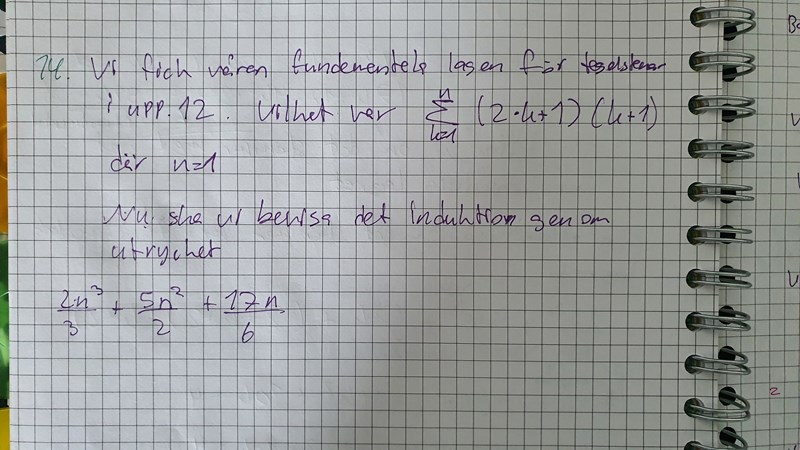 14. Vi fick våran fundamentala lagen för
i upp. 12. Vilket var n∑k=1 (2·k+1)(k+1)
där n=1
Nu ska vi bevisa det induktion genom
utrycket
2n³/3 + 5n²/2 + 17n/6